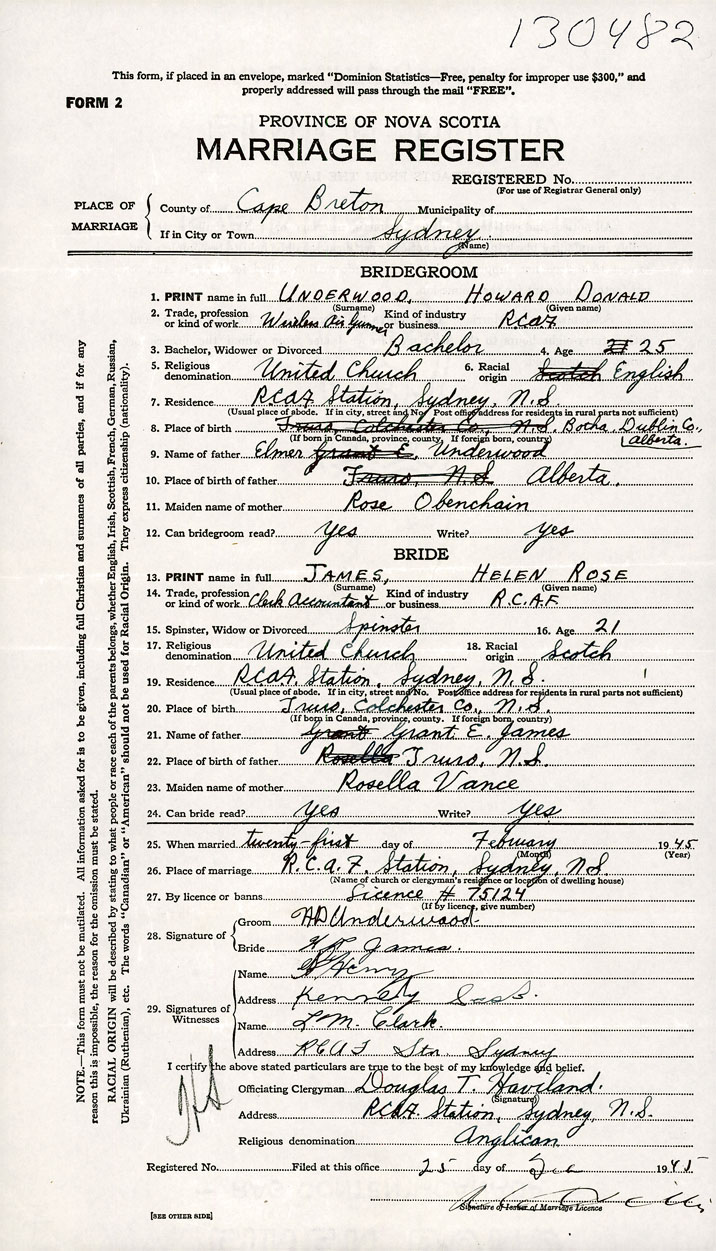 130482
This form, if placed in an envelope, marked "Dominion Statistics—Free, penalty for improper use $300," and
properly addressed will pass through the mail "FREE".
FORM 2
PROVINCE OF NOVA SCOTIA
MARRIAGE REGISTER
REGISTERED No.
(For use of Registrar General only)
PLACE OF MARRIAGE
County of Cape Breton Municipality of
If in City or Town Sydney
(Name)
BRIDEGROOM
1. PRINT name in full UNDERWOOD, HOWARD DONALD
(Surname) (Given name)
2. Trade, profession or kind of work Wireless Air Gunner Kind of industry or business RCAF
3. Bachelor, Widower or Divorced Bachelor 4. Age 25
5. Religious denomination United Church 6. Racial origin Scotch English
7. Residence RCAF Station, Sydney, N.S.
(Usual place of abode. If in city, street and No. Post office address for residents in rural parts not sufficient)
8. Place of birth Truro, Colchester Co., N.S. Bocha, Dublin Co., Alberta.
(If born in Canada, province, county, If foreign born, country)
9. Name of father Elmer Grant E. Underwood
10. Place of birth of father Truro, N.S Alberta.
11. Maiden name of mother Rose Obenchain
12. Can bridegroom read? Yes Write? Yes
BRIDE
13. PRINT name in full JAMES, HELEN ROSE
(Surname) (Given name)
14. Trade, profession or kind of work Clerk Accountant Kind of industry or business R.C.A.F.
15. Spinster, Widow or Divorced Spinster 16. Age 21
17. Religious denomination United Church 18. Racial origin Scotch
19. Residence RCAF. Station, Sydney, N.S.
(Usual place of abode. If in city, street and No. Post office address for residents in rural parts not sufficient)
20. Place of birth Truro, Colchester Co., N.S.
(If born in Canada, province, county. If foreign born, country)
21. Name of father Grant Grant E. James
22. Place of birth of father Rosella Truro, N.S.
23. Maiden name of mother Rosella Vance
24. Can bride read? Yes Write? Yes
25. When married twenty-first day of February 1945
(Month) (Year)
26. Place of marriage R.C.A.F. Station, Sydney, N.S.
(Name of church or clergyman's residence or location of dwelling house)
27. By licence or banns Licence # 75124
(If by licence, give number)
28. Signature of
Groom HD Underwood
Bride James.
29. Signatures of Witnesses
Name Henry
Address Kennedy Sask.
Name L.M. Clark.
Address RCAF Stn. Sydney
I certify the above stated particulars are true to the best of my knowledge and belief.
Officiating Clergyman Douglas T. Haviland.
(Signature)
Address RCAF Station, Sydney, N.S.
Religious denomination Anglican
Registered No. Filed at this office 25 day of 1945
Signature of Issuer of Marriage Licence
[SEE OTHER SIDE]
NOTE.—This form must not be mutilated. All information asked for is to be given, including full Christian and surnames of all parties, and if for any
reason this is impossible, the reason for the omission must be stated.
RACIAL ORIGIN will be described by stating to what people or race each of the parents belongs, whether English, Irish, Scottish, French, German, Russian,
Ukrainian (Ruthenian), etc. The words "Canadian" or "American" should not be used for Racial Origin. They express citizenship (nationality).